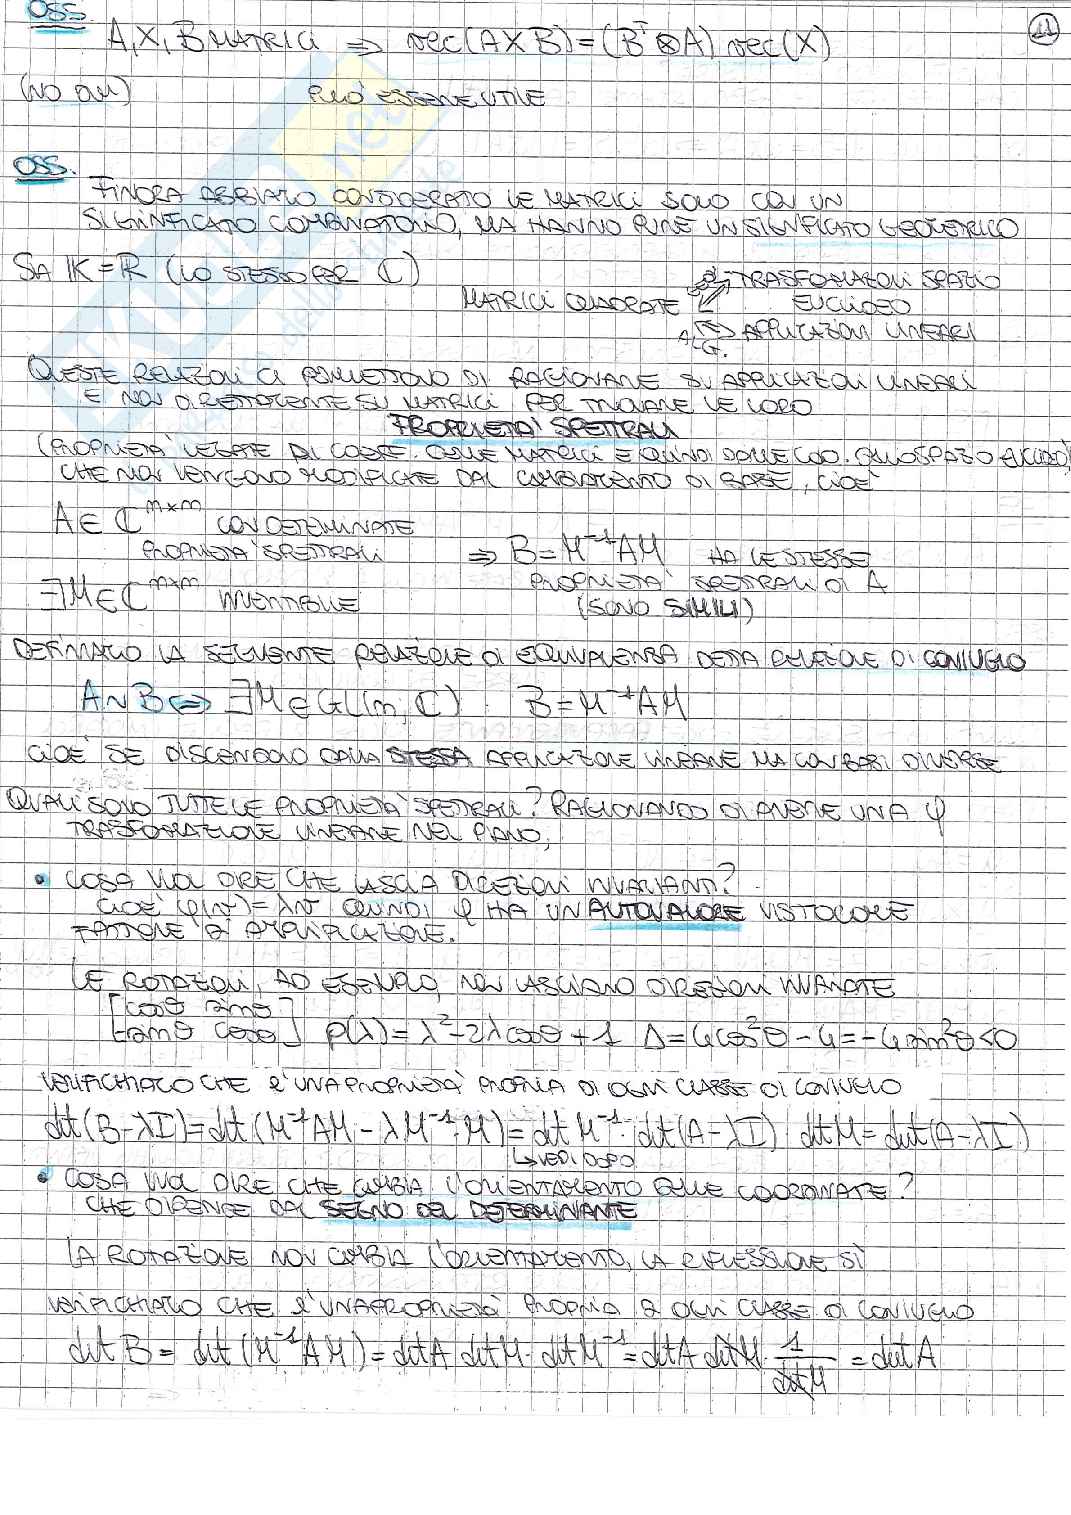 OSS.
11
A, X, B MATRICI ⇒ vec(AXB) = (Bᵀ ⊗ A) vec(X)
(NO DIM) PUO' ESSERE UTILE
OSS.
FINORA ABBIAMO CONSIDERATO LE MATRICI SOLO CON UN
SIGNIFICATO COMBINATORIO, MA HANNO PURE UN SIGNIFICATO GEOMETRICO
SIA K = R (LO STESSO PER C)
TRASFORMAZIONI SPAZIO
MATRICI QUADRATE EUCLIDEO
APPLICAZIONI LINEARI
QUESTE RELAZIONI CI PERMETTONO DI RAGIONARE SU APPLICAZIONI LINEARI
E NON DIRETTAMENTE SU MATRICI PER TROVARE LE LORO
PROPRIETA' SPETTRALI
(PROPRIETA' LEGATE DELLE MATRICI E QUINDI DELLO SPAZIO EUCLIDEO)
CHE NON VENGONO MODIFICATE DAL CAMBIAMENTO DI BASE, CIOE'
A ∈ C^{n×n} CON DETERMINATE
PROPRIETA' SPETTRALI ⇒ B = M⁻¹AM HA LE STESSE
∃M ∈ C^{n×n} INVERTIBILE PROPRIETA' SPETTRALI DI A
(SONO SIMILI)
DEFINIAMO LA SEGUENTE RELAZIONE DI EQUIVALENZA DETTA RELAZIONE DI CONIUGIO
A ~ B ⇔ ∃M ∈ GL(n, C) : B = M⁻¹AM
CIOE' SE DISCENDONO DALLA STESSA APPLICAZIONE LINEARE MA CON BASI DIVERSE
QUALI SONO TUTTE LE PROPRIETA' SPETTRALI? RAGIONANDO DI AVERE UNA φ
TRASFORMAZIONE LINEARE NEL PIANO,
• COSA VUOL DIRE CHE LASCIA DIREZIONI INVARIANTI?
CIOE' φ(v) = λv QUINDI φ HA UN AUTOVALORE VISTO COME
FATTORE DI AMPLIFICAZIONE.
LE ROTAZIONI, AD ESEMPIO, NON LASCIANO DIREZIONI INVARIATE
[cosθ sinθ]
[-sinθ cosθ] p(λ) = λ² - 2λcosθ + 1 Δ = 4cos²θ - 4 = -4sin²θ < 0
VERIFICHIAMO CHE E' UNA PROPRIETA' PROPRIA DI OGNI CLASSE DI CONIUGIO
det(B - λI) = det(M⁻¹AM - λM⁻¹·M) = det M⁻¹ · det(A - λI) · det M = det(A - λI)
↳ VEDI DOPO
• COSA VUOL DIRE CHE CAMBIA L'ORIENTAMENTO DELLE COORDINATE?
CHE DIPENDE DAL SEGNO DEL DETERMINANTE
LA ROTAZIONE NON CAMBIA L'ORIENTAMENTO, LA RIFLESSIONE SÌ
VERIFICHIAMO CHE E' UNA PROPRIETA' PROPRIA DI OGNI CLASSE DI CONIUGIO
det B = det(M⁻¹AM) = det A det M · det M⁻¹ = det A det M · 1/det M = det A